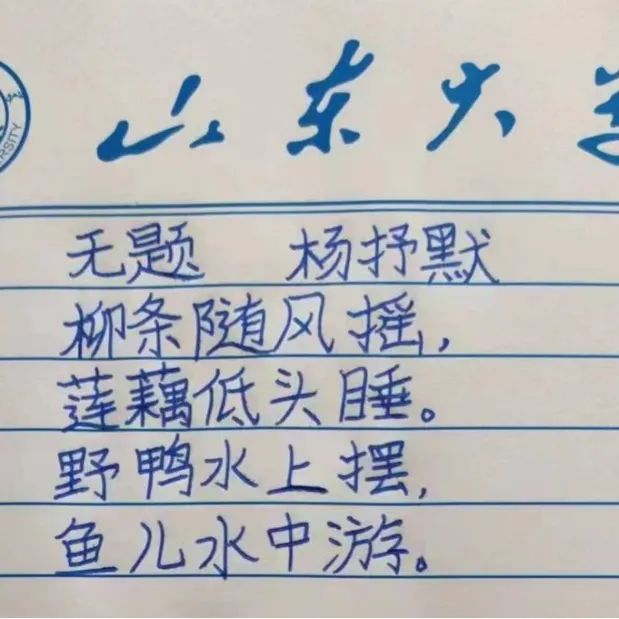 山东大学
RSITY
无题 杨抒默
柳条随风摇,
莲藕低头睡。
野鸭水上摆,
鱼儿水中游。